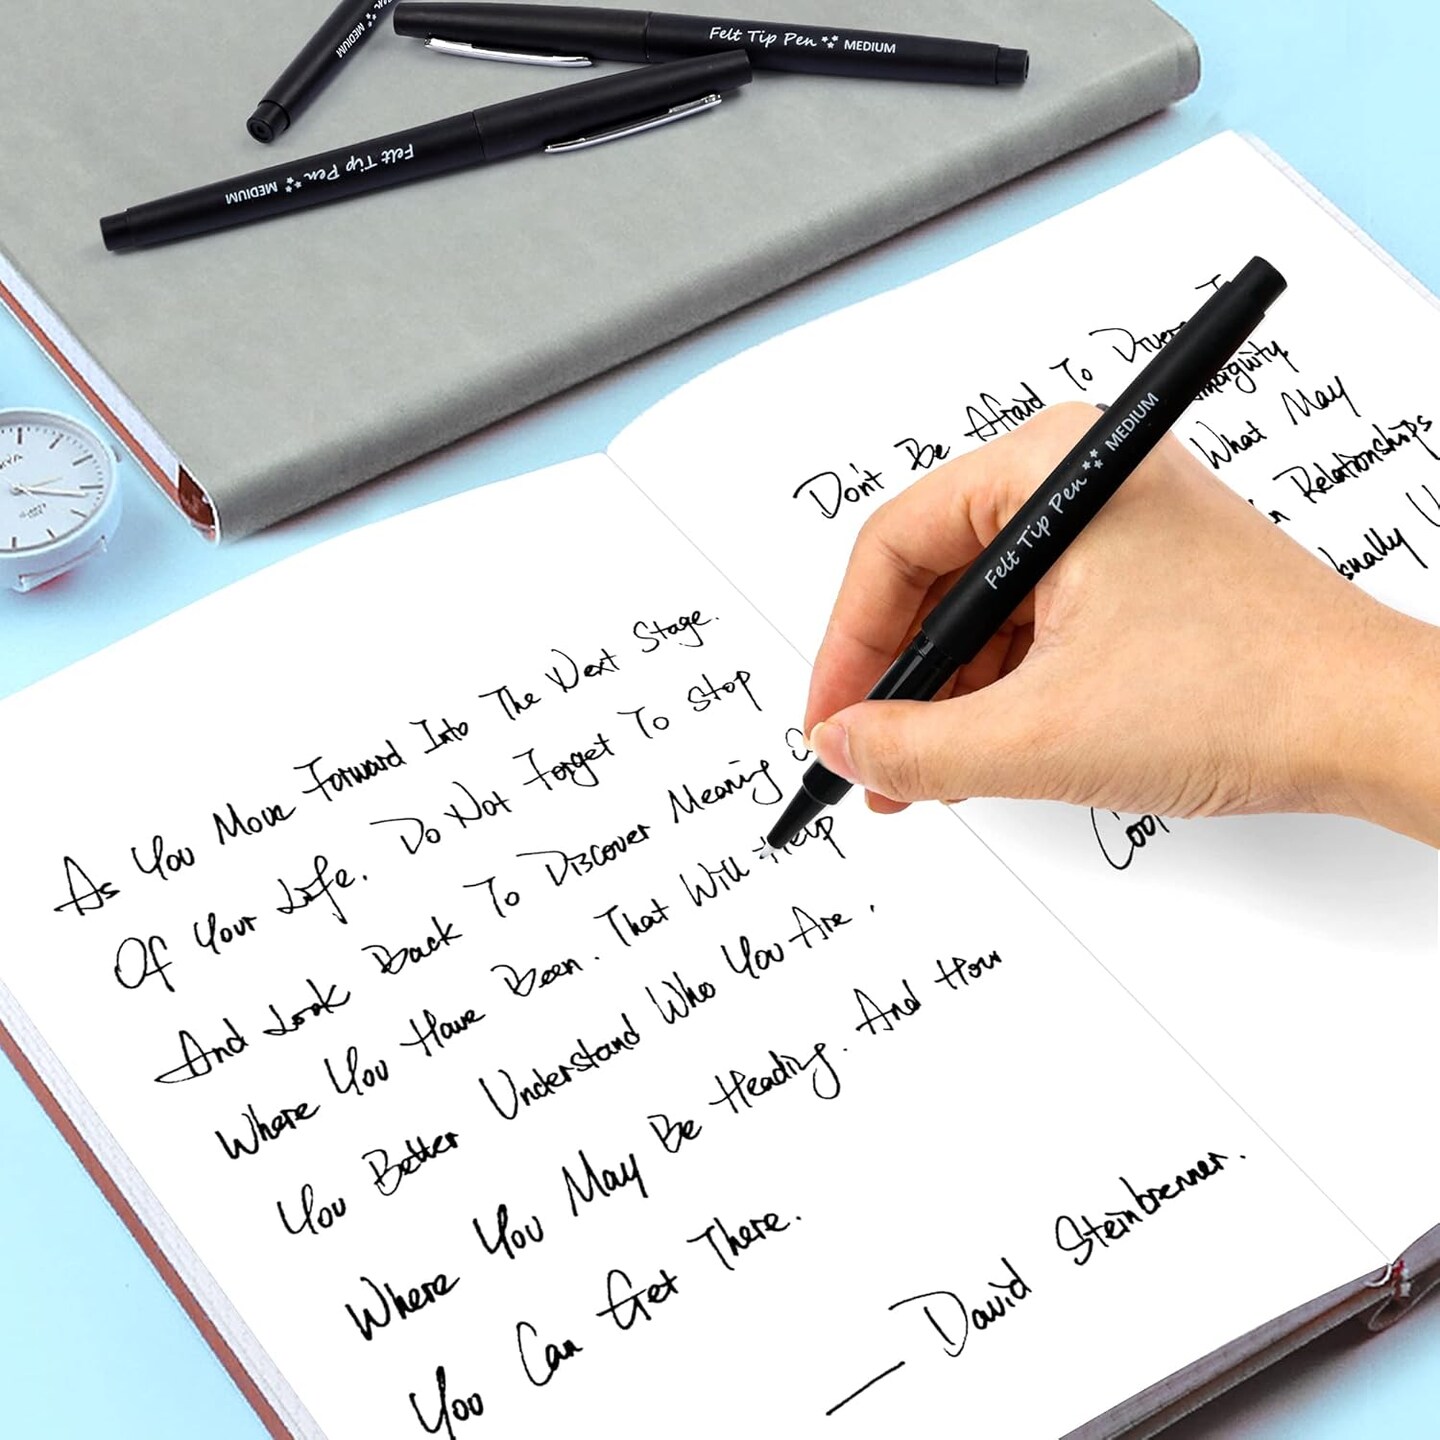 MEDIUM
Felt Tip Pen MEDIUM
Felt Tip Pen MEDIUM
Felt Tip Pen MEDIUM
As You Move Forward Into The Next Stage.
Of Your Life. Do Not Forget To Stop
And Look Back To Discover Meaning
Where You Have Been. That Will Help
You Better Understand Who You Are.
Where You May Be Heading. And How
You Can Get There.
— David Steinbrenner.
Don't Be Afraid To
What May
Relationships